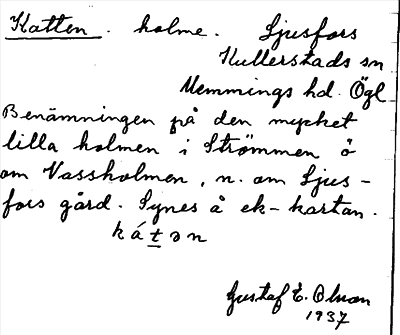 Katten. holme. Ljusfors
Kullerstads sn
Memmings hd. Ögl
Benämningen på den mycket
lilla holmen i Strömmen ö
om Vassholmen, n. om Ljus-
fors gård. Synes å ek-kartan.
kátən
Gustaf E. Olsson
1937